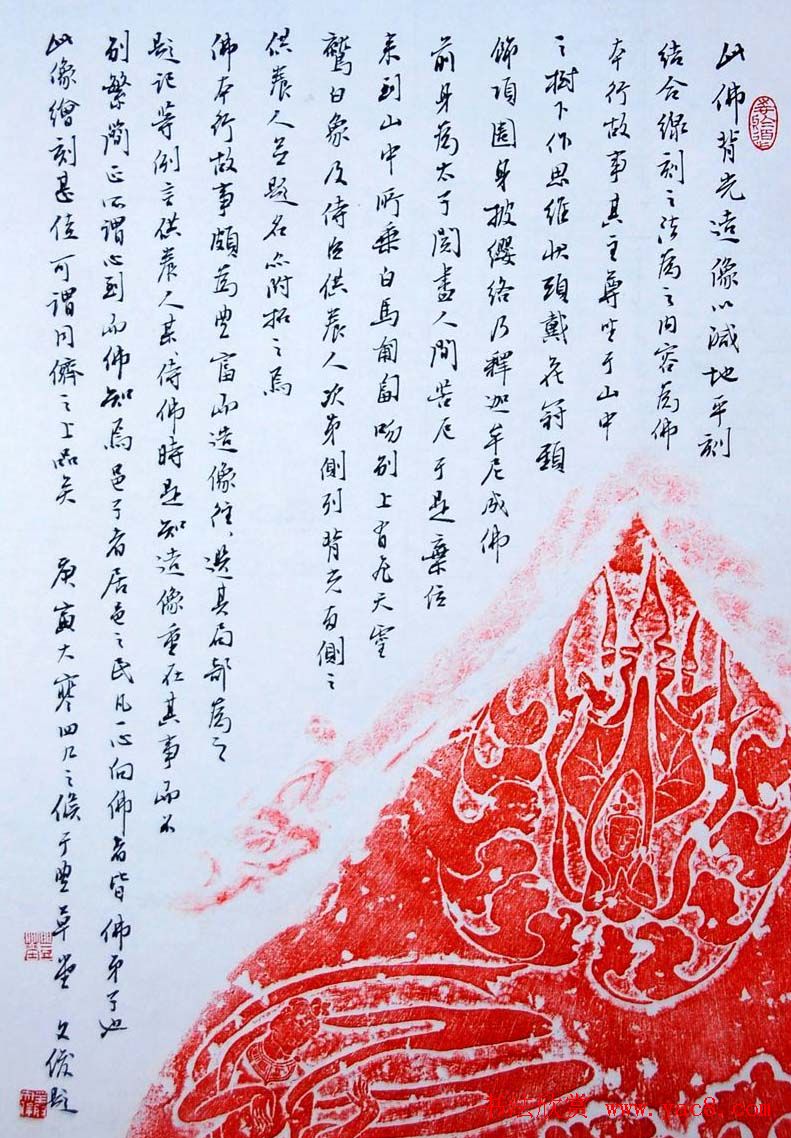 此佛背光造像以減地平刻
结合線刻之法為之内容為佛
本行故事其主尊坐于山中
之樹下作思維狀頭戴花冠頸
飾項圈身披纓络乃釋迦牟尼成佛
前身為太子閲盡人間苦厄于是棄位
来到山中所乘白馬匍匐吻别上有飛天靈
鷲白象及侍臣供養人次第側列背光右側之
供養人并題名亦附拓之焉
佛本行故事頗為豐富而造像往往選其局部為之
題記等例言供養人某某侍佛時是知造像重在其事而不
别繁簡正所謂心到而佛知焉邑子者居邑之民凡一心向佛者皆佛弟子也
此像繪刻甚佳可謂同儕之上品矣 庚寅大寒四九之候于豐草堂 文俊題
书法欣赏 www.yac8.com